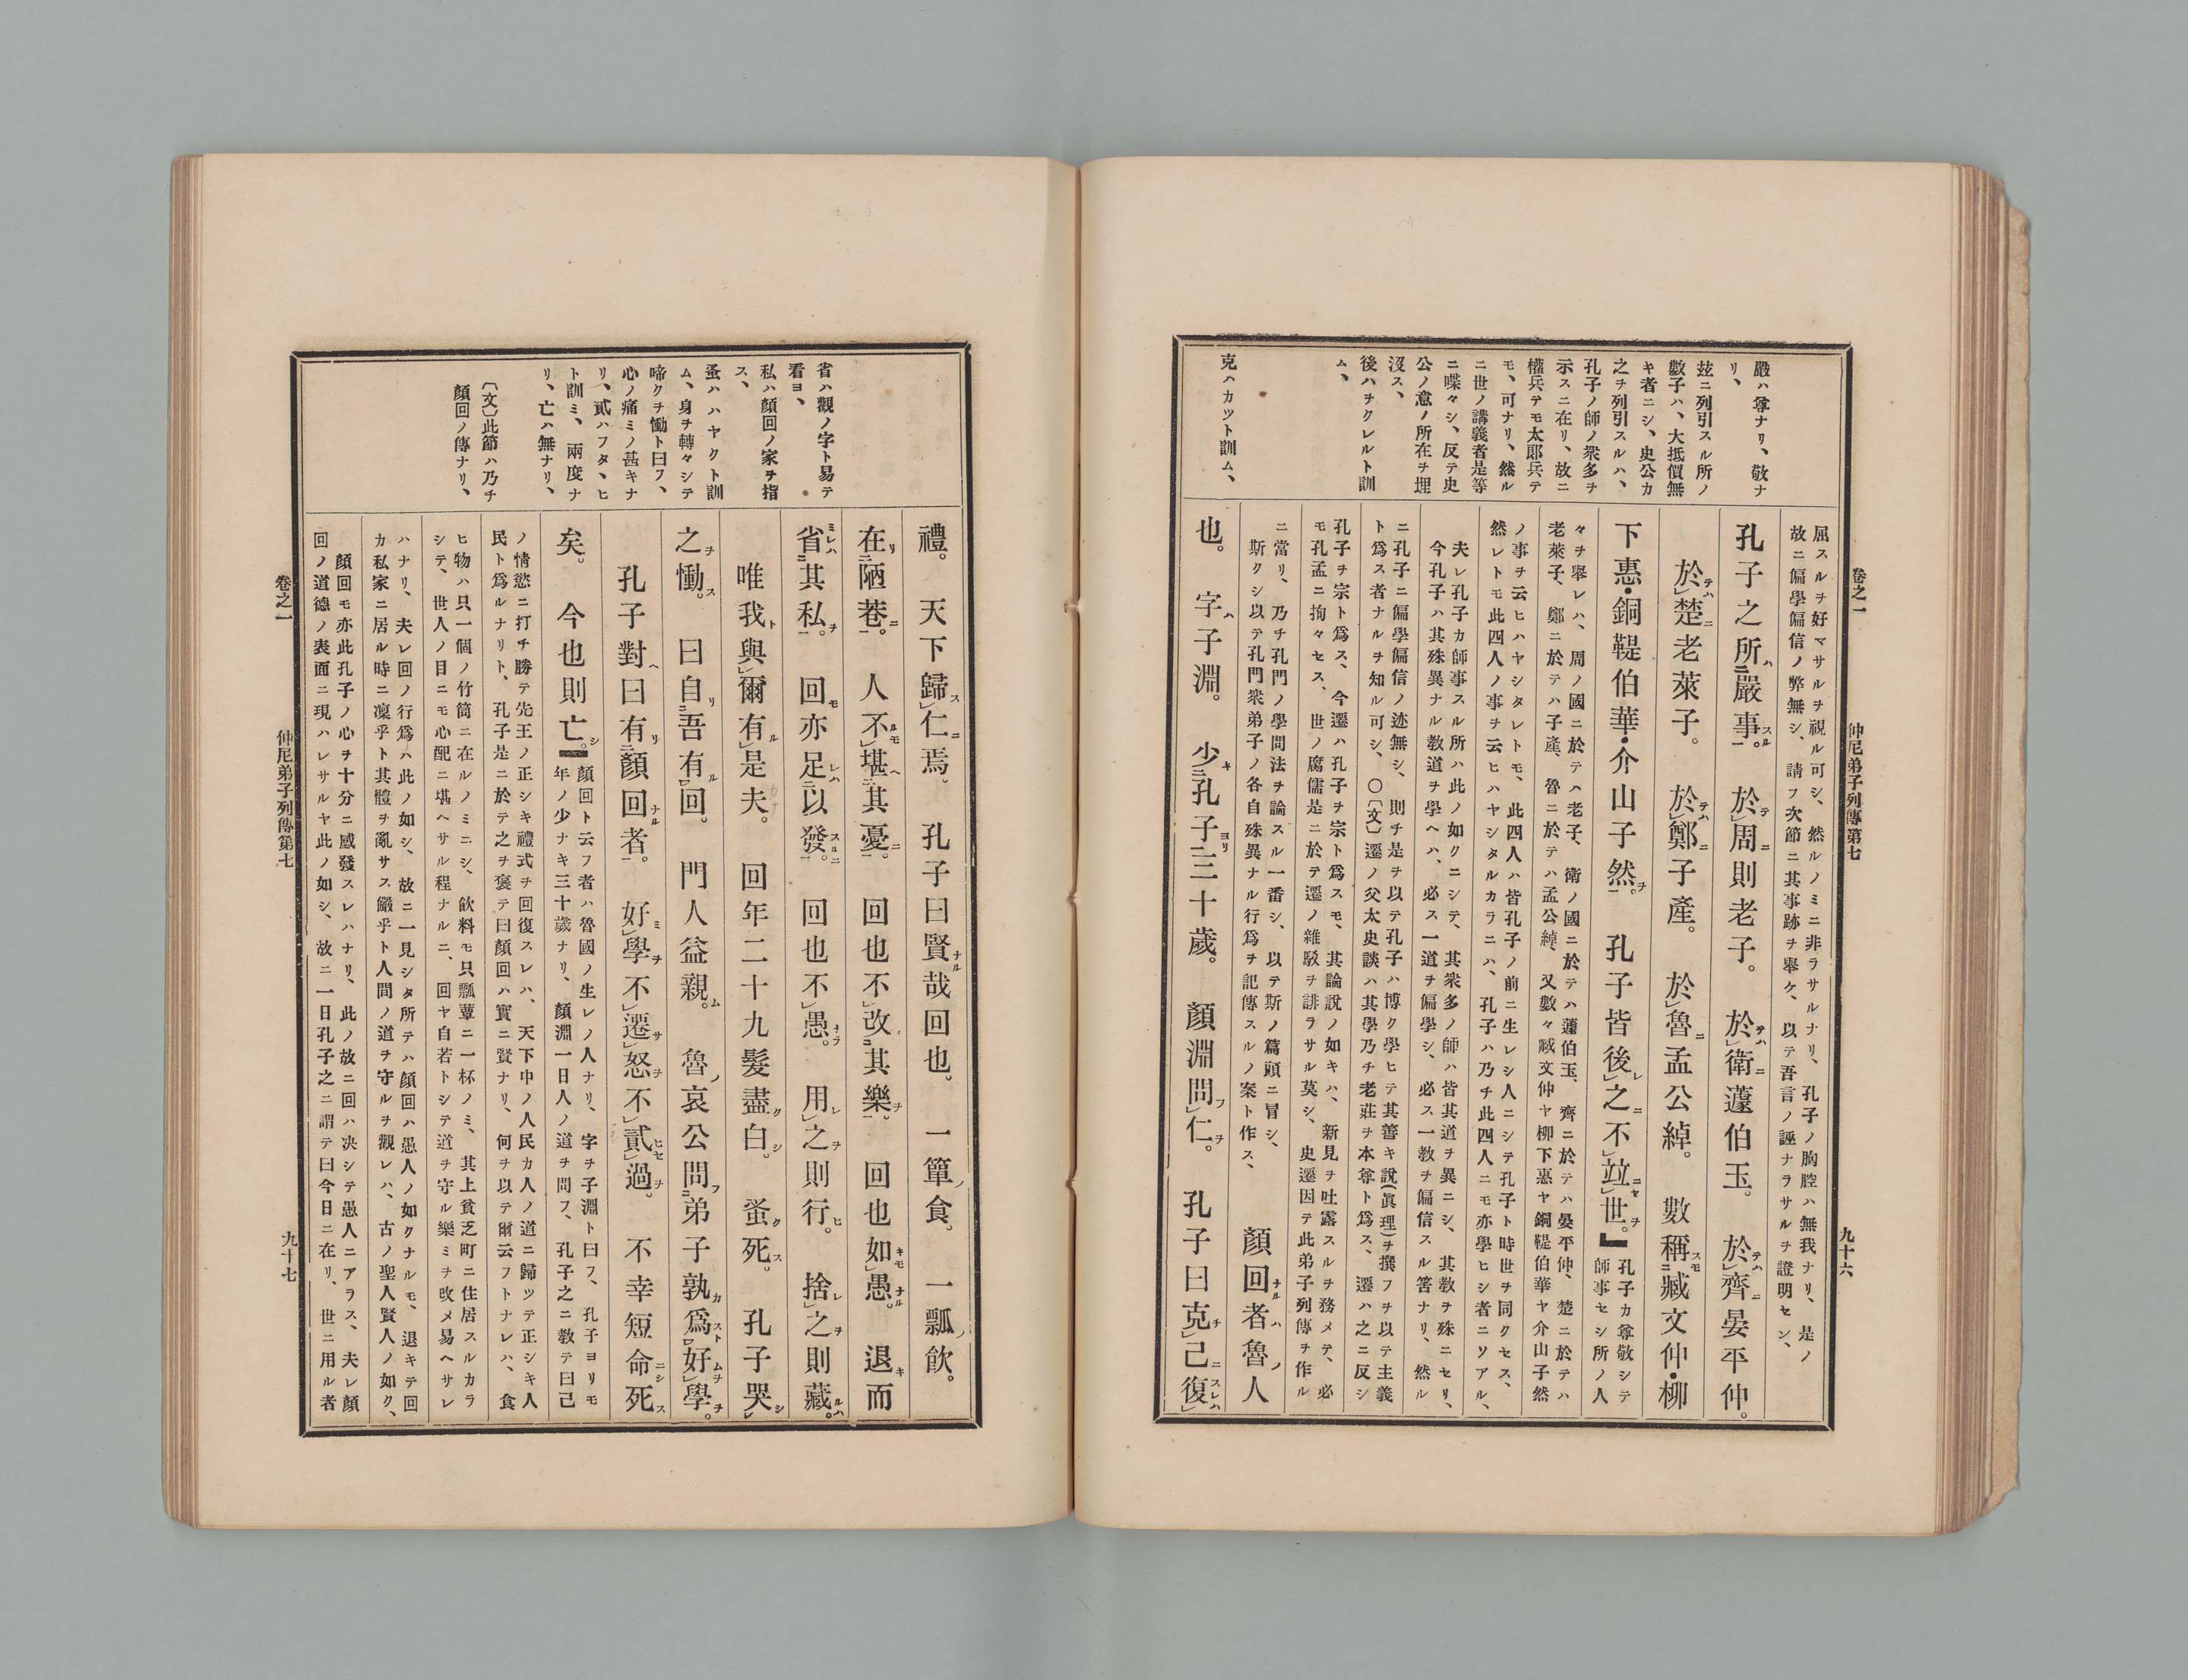 卷之一
仲尼弟子列傳第七
九十六
嚴ハ尊ナリ、敬ナ
リ、
玆ニ列引スル所ノ
數子ハ、大抵價無
キ者ニシ、史公カ
之ヲ列引スルハ、
孔子ノ師ノ衆多ヲ
示スニ在リ、故ニ
權兵テモ太郎兵テ
モ、可ナリ、然ル
ニ世ノ講義者是等
ニ喋々シ、反テ史
公ノ意ノ所在ヲ埋
沒ス、
後ハヲクレルト訓
ム、
克ハカツト訓ム、
屈スルヲ好マサルヲ視ル可シ、然ルノミニ非ラサルナリ、孔子ノ胸腔ハ無我ナリ、是ノ
故ニ偏學偏信ノ弊無シ、請フ次節ニ其事跡ヲ舉ケ、以テ吾言ノ誣ナラサルヲ證明セン、
孔子之所ハ二嚴事スル一。於テ周ニ則老子。於テハレ衛ニ蘧伯玉。於テハレ齊ニ晏平仲。
於テハレ楚ニ老萊子。於テハレ鄭ニ子產。於レ魯ニ孟公綽。數稱スモ二臧文仲・柳
下惠・銅鞮伯華・介山子然ヲ一。孔子皆後レレ之ニ不レ竝ニセレ世ヲ。孔子カ尊敬シテ
師事セシ所ノ人
々ヲ舉レハ、周ノ國ニ於テハ老子、衛ノ國ニ於テハ蘧伯玉、齊ニ於テハ晏平仲、楚ニ於テハ
老萊子、鄭ニ於テハ子產、魯ニ於テハ孟公綽、又數々臧文仲ヤ柳下惠ヤ銅鞮伯華ヤ介山子然
ノ事ヲ云ヒハヤシタレトモ、此四人ハ皆孔子ノ前ニ生レシ人ニシテ孔子ト時世ヲ同クセス、
然レトモ此四人ノ事ヲ云ヒハヤシタルカラニハ、孔子ハ乃チ此四人ニモ亦學ヒシ者ニソアル、
夫レ孔子カ師事スル所ハ此ノ如クニシテ、其衆多ノ師ハ皆其道ヲ異ニシ、其教ヲ殊ニセリ、
今孔子ハ其殊異ナル教道ヲ學ヘハ、必ス一道ヲ偏學シ、必ス一教ヲ偏信スル筈ナリ、然ル
ニ孔子ニ偏學偏信ノ迹無シ、則チ是ヲ以テ孔子ハ博ク學ヒテ其善キ說(眞理)ヲ撰フヲ以テ主義
ト爲ス者ナルヲ知ル可シ、〇〔文〕遷ノ父太史談ハ其學乃チ老莊ヲ本尊ト爲ス、遷ハ之ニ反シ
孔子ヲ宗ト爲ス、今遷ハ孔子ヲ宗ト爲スモ、其論說ノ如キハ、新見ヲ吐露スルヲ務メテ、必
モ孔孟ニ拘々セス、世ノ腐儒是ニ於テ遷ノ雜駁ヲ誹ラサル莫シ、史遷因テ此弟子列傳ヲ作ル
ニ當リ、乃チ孔門ノ學問法ヲ論スル一番シ、以テ斯ノ篇頭ニ冒シ、
斯クシ以テ孔門衆弟子ノ各自殊異ナル行爲ヲ記傳スルノ案ト作ス、
顏回ナル者ハ魯ノ人
也。字ハ子淵。少キ二孔子ヨリ一三十歲。顏淵問フレ仁ヲ。孔子曰克チレ己ニ復スレハレ
禮。天下歸スレ仁ニ焉。孔子曰賢ナル哉回也。一簞ノ食。一瓢ノ飮。
在リ二陋巷ニ一。人不ルモレ堪ヘ二其憂ニ一。回也不レ改二其樂ヲ一。回也如キモレ愚ナル。退キ而
省ミレハ二其私ヲ一。回モ亦足レハ二以發スルニ一。回也不レ愚ナラ。用レレ之ヲ則行ヒ。捨レレ之ヲ則藏ルハ。
唯我ト與レ爾有ルレ是夫。回年二十九髮盡ク白シ。蚤ク死ス。孔子哭シレ
之ヲ慟ス。曰自リ二吾有ルレ回。門人益親ム。魯ノ哀公問フ二弟子孰カ爲スト二好ムヲレ學ヲ。
孔子對ヘ曰有リ二顏回ナル者一。好ミレ學ヲ不レ遷サレ怒ヲ不レ貳ヒセレ過ヲ。不幸短命ニシ死ス
矣。今也則亡シ。顏回ト云フ者ハ魯國ノ生レノ人ナリ、字ヲ子淵ト曰フ、孔子ヨリモ
年ノ少ナキ三十歲ナリ、顏淵一日人ノ道ヲ問フ、孔子之ニ教テ曰己
ノ情慾ニ打チ勝テ先王ノ正シキ禮式ヲ回復スレハ、天下中ノ人民カ人ノ道ニ歸ツテ正シキ人
民ト爲ルナリト、孔子是ニ於テ之ヲ褒テ曰顏回ハ實ニ賢ナリ、何ヲ以テ爾云フトナレハ、食
ヒ物ハ只一個ノ竹筒ニ在ルノミニシ、飮料モ只瓢蕈ニ一杯ノミ、其上貧乏町ニ住居スルカラ
シテ、世人ノ目ニモ心配ニ堪ヘサル程ナルニ、回ヤ自若トシテ道ヲ守ル樂ミヲ改メ易ヘサレ
ハナリ、夫レ回ノ行爲ハ此ノ如シ、故ニ一見シタ所テハ顏回ハ愚人ノ如クナルモ、退キテ回
カ私家ニ居ル時ニ凜乎ト其體ヲ亂サス嚴乎ト人間ノ道ヲ守ルヲ觀レハ、古ノ聖人賢人ノ如ク、
顏回モ亦此孔子ノ心ヲ十分ニ感發スレハナリ、此ノ故ニ回ハ決シテ愚人ニアラス、夫レ顏
回ノ道德ノ表面ニ現ハレサルヤ此ノ如シ、故ニ一日孔子之ニ謂テ曰今日ニ在リ、世ニ用ル者
省ハ觀ノ字ト易テ
看ヨ、
私ハ顏回ノ家ヲ指
ス、
蚤ハハヤクト訓
ム、身ヲ轉々シテ
啼クヲ慟ト曰フ、
心ノ痛ミノ甚キナ
リ、貳ハフタヽヒ
ト訓ミ、兩度ナ
リ、亡ハ無ナリ、
〔文〕此節ハ乃チ
顏回ノ傳ナリ、
卷之一
仲尼弟子列傳第七
九十七